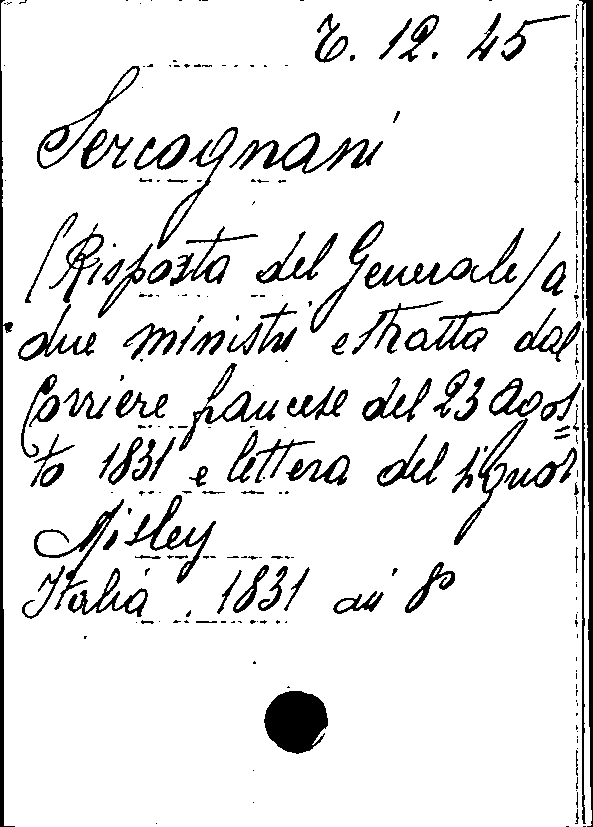 T. 12. 45
Sercognani
(Risposta del Generale) a
due ministri estratta dal
Corriere francese del 23 Agos=
to 1831 e lettera del Signor
Misley
Italia. 1831 in 8º